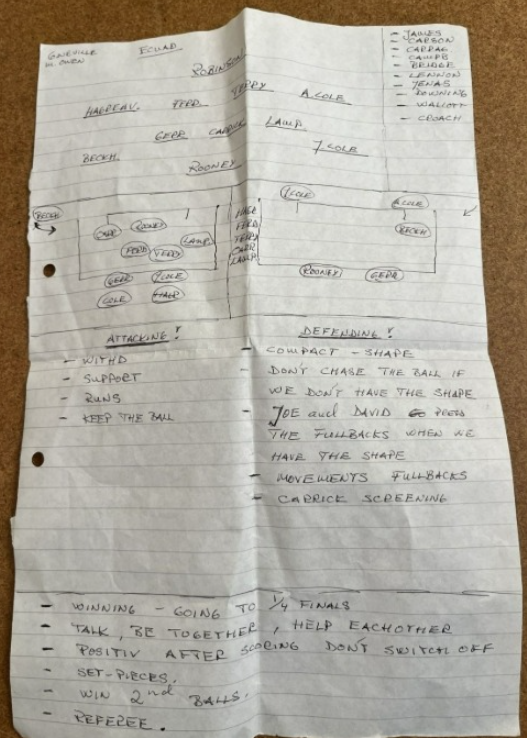 G NEVILLE
M. OWEN
ECUAD.
- JAMES
- CARSON
- CARRAG
- CAMPB
- BRIDGE
- LENNON
- JENAS
- DOWNING
- WALCOTT
- CROACH
ROBINSON
HAGREAV. FERD. TERRY A. COLE
GERR CARRICK LAMP.
BECKH. J COLE
ROONEY
BECKH
ROONEY
LAMP.
FERD TERRY
GERR J COLE
COLE HARG
HARG
FERD
TERRY
CARR
LAMP.
J COLE
A. COLE
BECKH
ROONEY GERR
ATTACKING!
- WITHD
- SUPPORT
- RUNS
- KEEP THE BALL
DEFENDING!
- COMPACT - SHAPE
- DON'T CHASE THE BALL IF
WE DON'T HAVE THE SHAPE
- JOE and DAVID PRESS
THE FULLBACKS WHEN WE
HAVE THE SHAPE
- MOVEMENTS FULLBACKS
- CARRICK SCREENING
- WINNING - GOING TO 1/4 FINALS
- TALK, BE TOGETHER, HELP EACHOTHER
- POSITIV AFTER SCORING DON'T SWITCH OFF
- SET-PIECES.
- WIN 2nd BALLS.
- REFEREE.